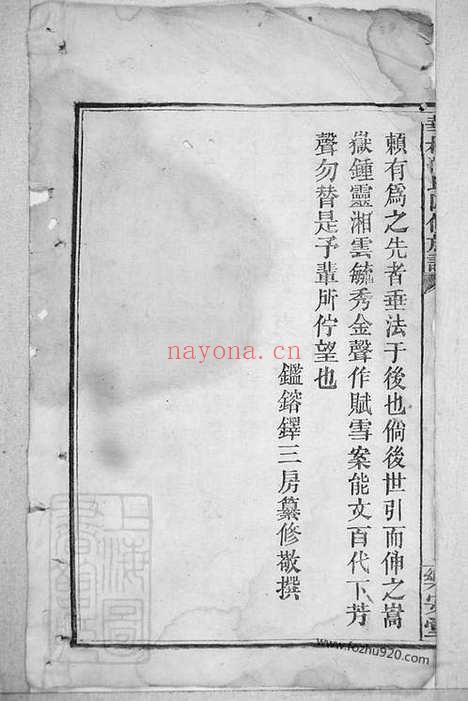 賴有爲之先者垂法于後也倘後世引而伸之嵩
嶽鍾靈湘雲毓秀金聲作賦雪案能文百代下芳
聲勿替是予輩所佇望也
鑑鎔鐸三房纂修敬撰
樂安堂
nayona.cn
www.fozhu920.com